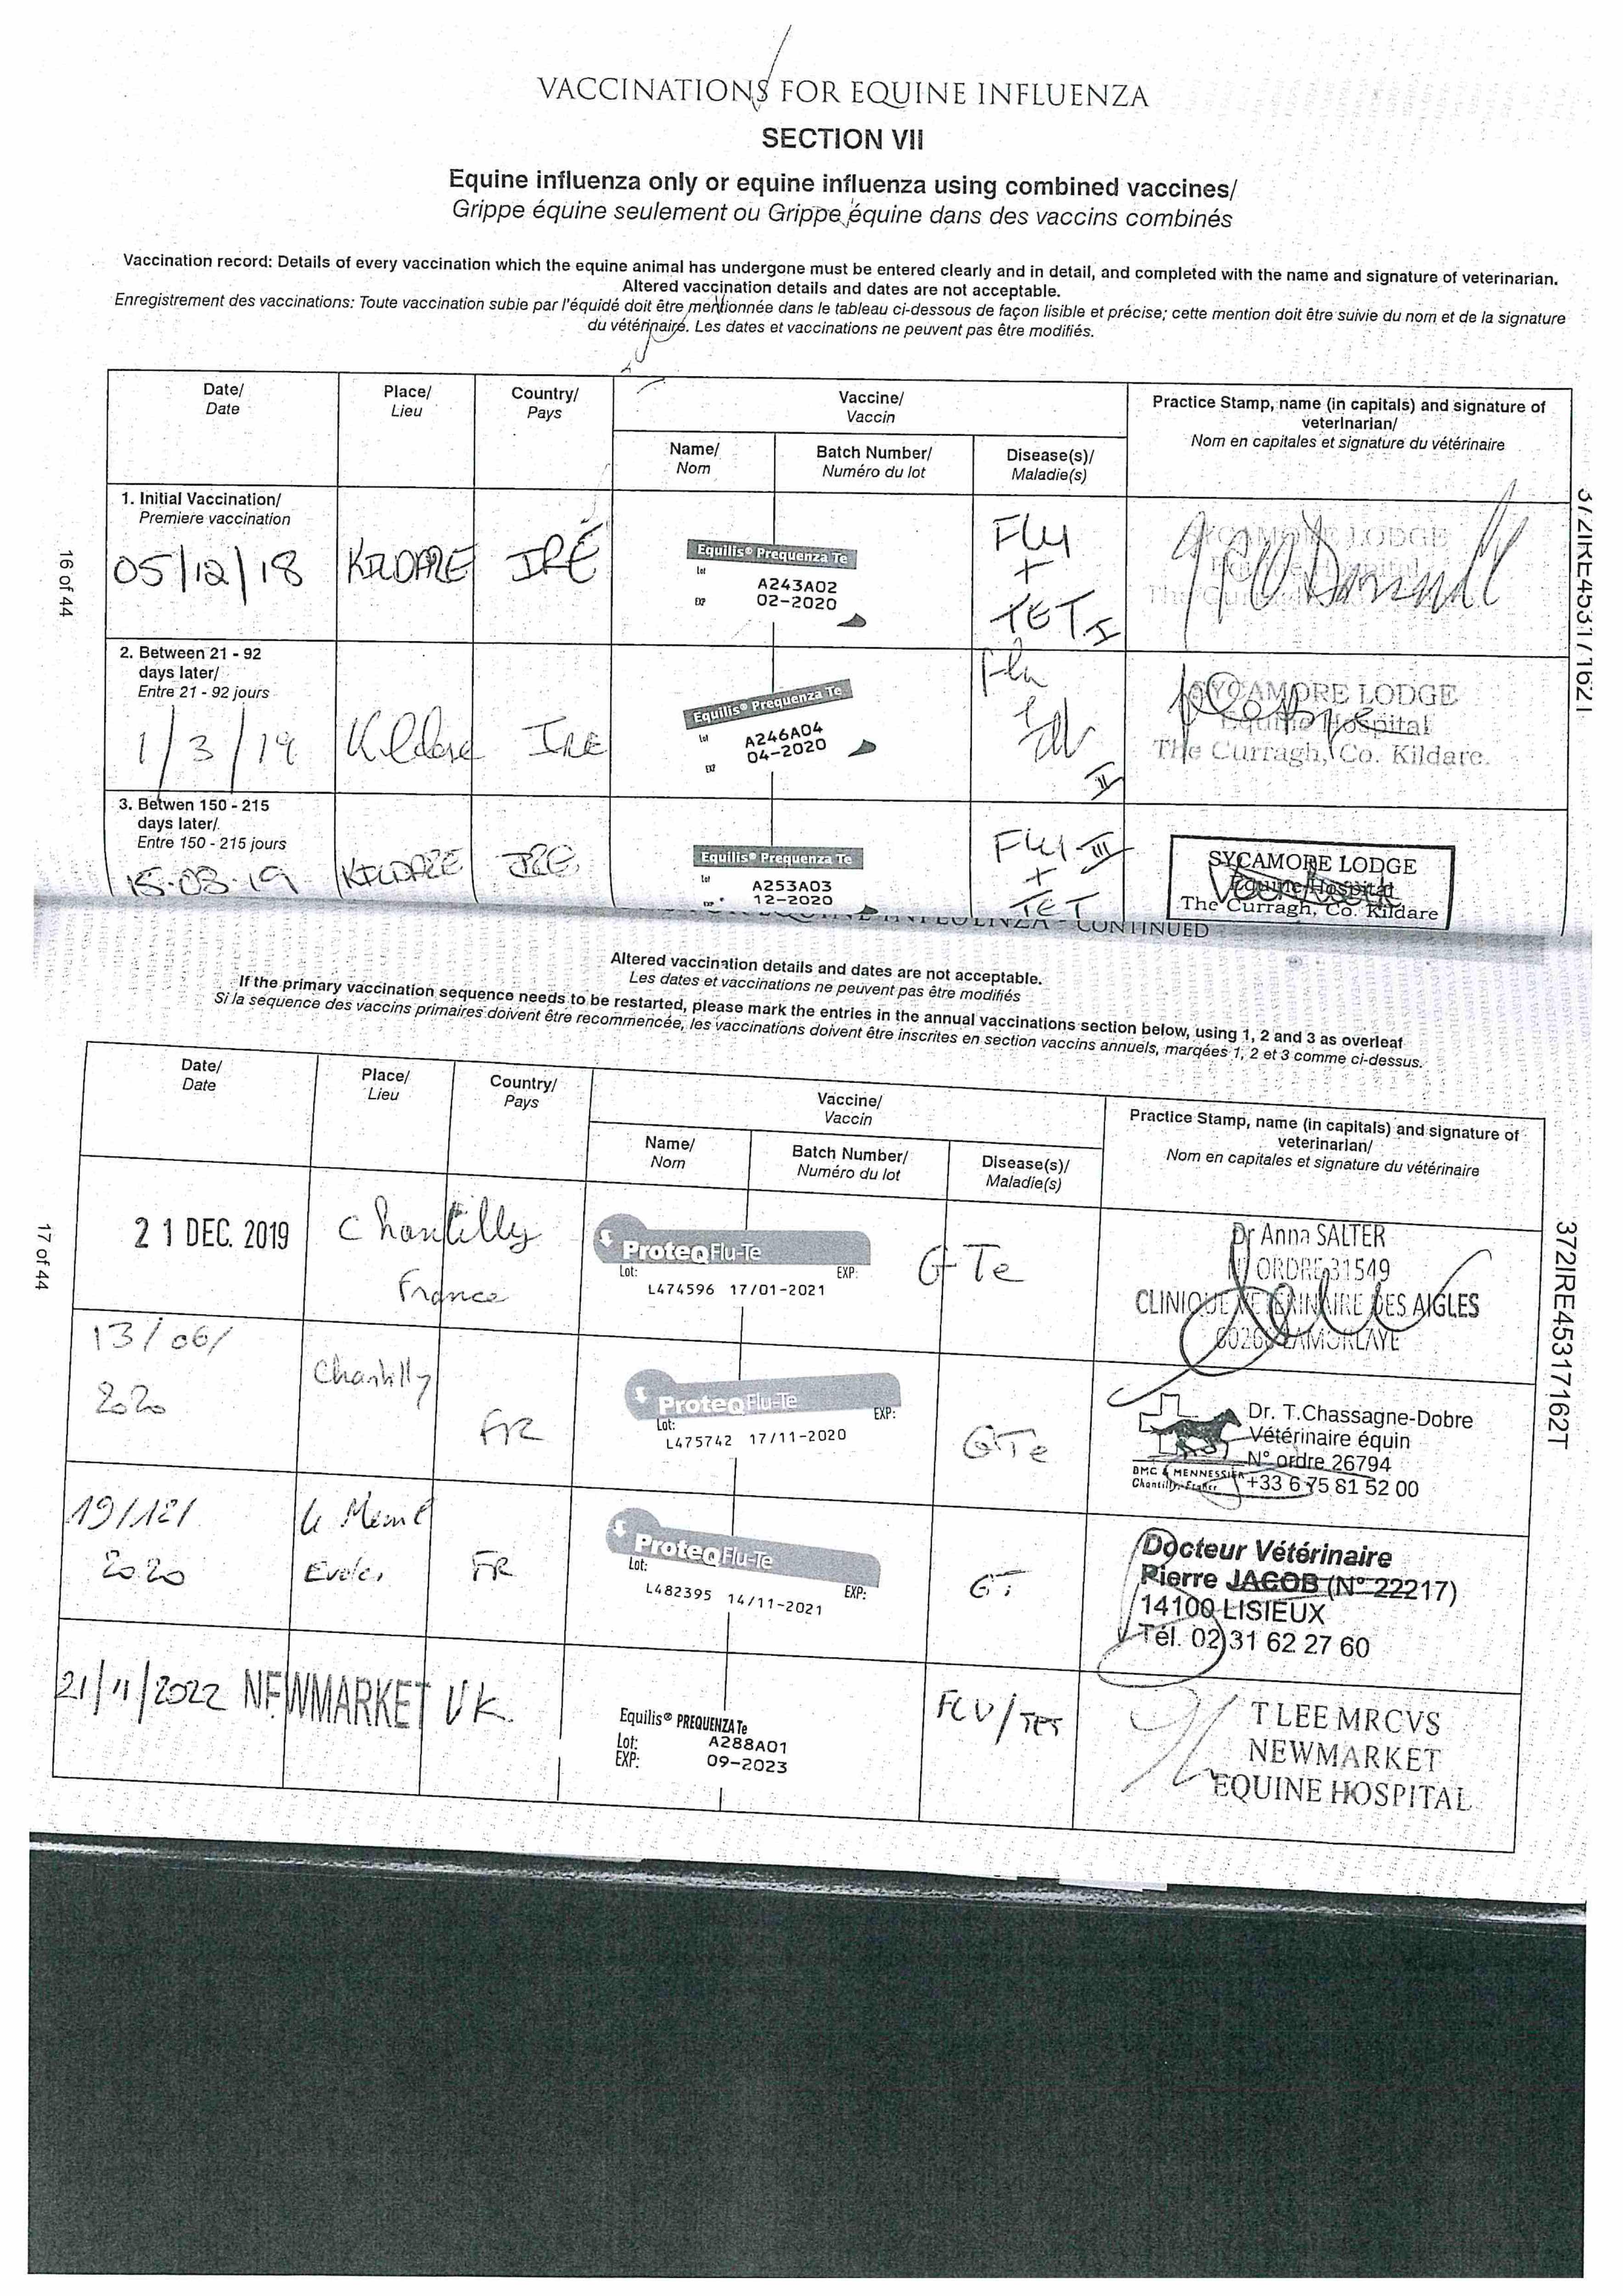 VACCINATIONS FOR EQUINE INFLUENZA
SECTION VII
Equine influenza only or equine influenza using combined vaccines/
Grippe équine seulement ou Grippe équine dans des vaccins combinés
Vaccination record: Details of every vaccination which the equine animal has undergone must be entered clearly and in detail, and completed with the name and signature of veterinarian.
Altered vaccination details and dates are not acceptable.
Enregistrement des vaccinations: Toute vaccination subie par l'équidé doit être mentionnée dans le tableau ci-dessous de façon lisible et précise; cette mention doit être suivie du nom et de la signature
du vétérinaire. Les dates et vaccinations ne peuvent pas être modifiés.
Date/
Date
Place/
Lieu
Country/
Pays
Vaccine/
Vaccin
Name/
Nom
Batch Number/
Numéro du lot
Disease(s)/
Maladie(s)
Practice Stamp, name (in capitals) and signature of
veterinarian/
Nom en capitales et signature du vétérinaire
16 of 44
372IRE45317162T
1. Initial Vaccination/
Premiere vaccination
05/12/18
KILDARE
IRE
Equilis® Prequenza Te
Lot
A243A02
EXP
02-2020
FLU
+
TET I
SYCAMORE LODGE
2. Between 21 - 92
days later/
Entre 21 - 92 jours
1/3/19
Kildare
IRE
Equilis® Prequenza Te
Lot
A246A04
EXP
04-2020
Flu
II
SYCAMORE LODGE
Equine Hospital
The Curragh, Co. Kildare.
3. Betwen 150 - 215
days later/
Entre 150 - 215 jours
15-08-19
KILDARE
IRE
Equilis® Prequenza Te
Lot
A253A03
EXP
12-2020
FLU III
+
TET
SYCAMORE LODGE
Equine Hospital
The Curragh, Co. Kildare
EQUINE INFLUENZA - CONTINUED
Altered vaccination details and dates are not acceptable.
Les dates et vaccinations ne peuvent pas être modifiés
If the primary vaccination sequence needs to be restarted, please mark the entries in the annual vaccinations section below, using 1, 2 and 3 as overleaf
Si la séquence des vaccins primaires doivent être recommencée, les vaccinations doivent être inscrites en section vaccins annuels, marqées 1, 2 et 3 comme ci-dessus.
Date/
Date
Place/
Lieu
Country/
Pays
Vaccine/
Vaccin
Name/
Nom
Batch Number/
Numéro du lot
Disease(s)/
Maladie(s)
Practice Stamp, name (in capitals) and signature of
veterinarian/
Nom en capitales et signature du vétérinaire
17 of 44
372IRE45317162T
21 DEC. 2019
Chantilly
France
ProteqFlu-Te
Lot:
EXP:
L474596 17/01-2021
GTe
Dr Anna SALTER
N° ORDRE 31549
CLINIQUE VETERINAIRE DES AIGLES
60260 LAMORLAYE
13/06/
2020
Chantilly
FR
ProteqFlu-Te
Lot:
EXP:
L475742 17/11-2020
GTe
Dr. T.Chassagne-Dobre
Vétérinaire équin
N° ordre 26794
+33 6 75 81 52 00
BMC & MENNESSIER
Chantilly, France
19/12/
2020
FR
ProteqFlu-Te
Lot:
EXP:
L482395 14/11-2021
Docteur Vétérinaire
Pierre JACOB (N° 22217)
14100 LISIEUX
Tél. 02 31 62 27 60
21/11/2022
NEWMARKET
UK
Equilis® PREQUENZA Te
Lot: A288A01
EXP: 09-2023
FLU/TET
T LEE MRCVS
NEWMARKET
EQUINE HOSPITAL